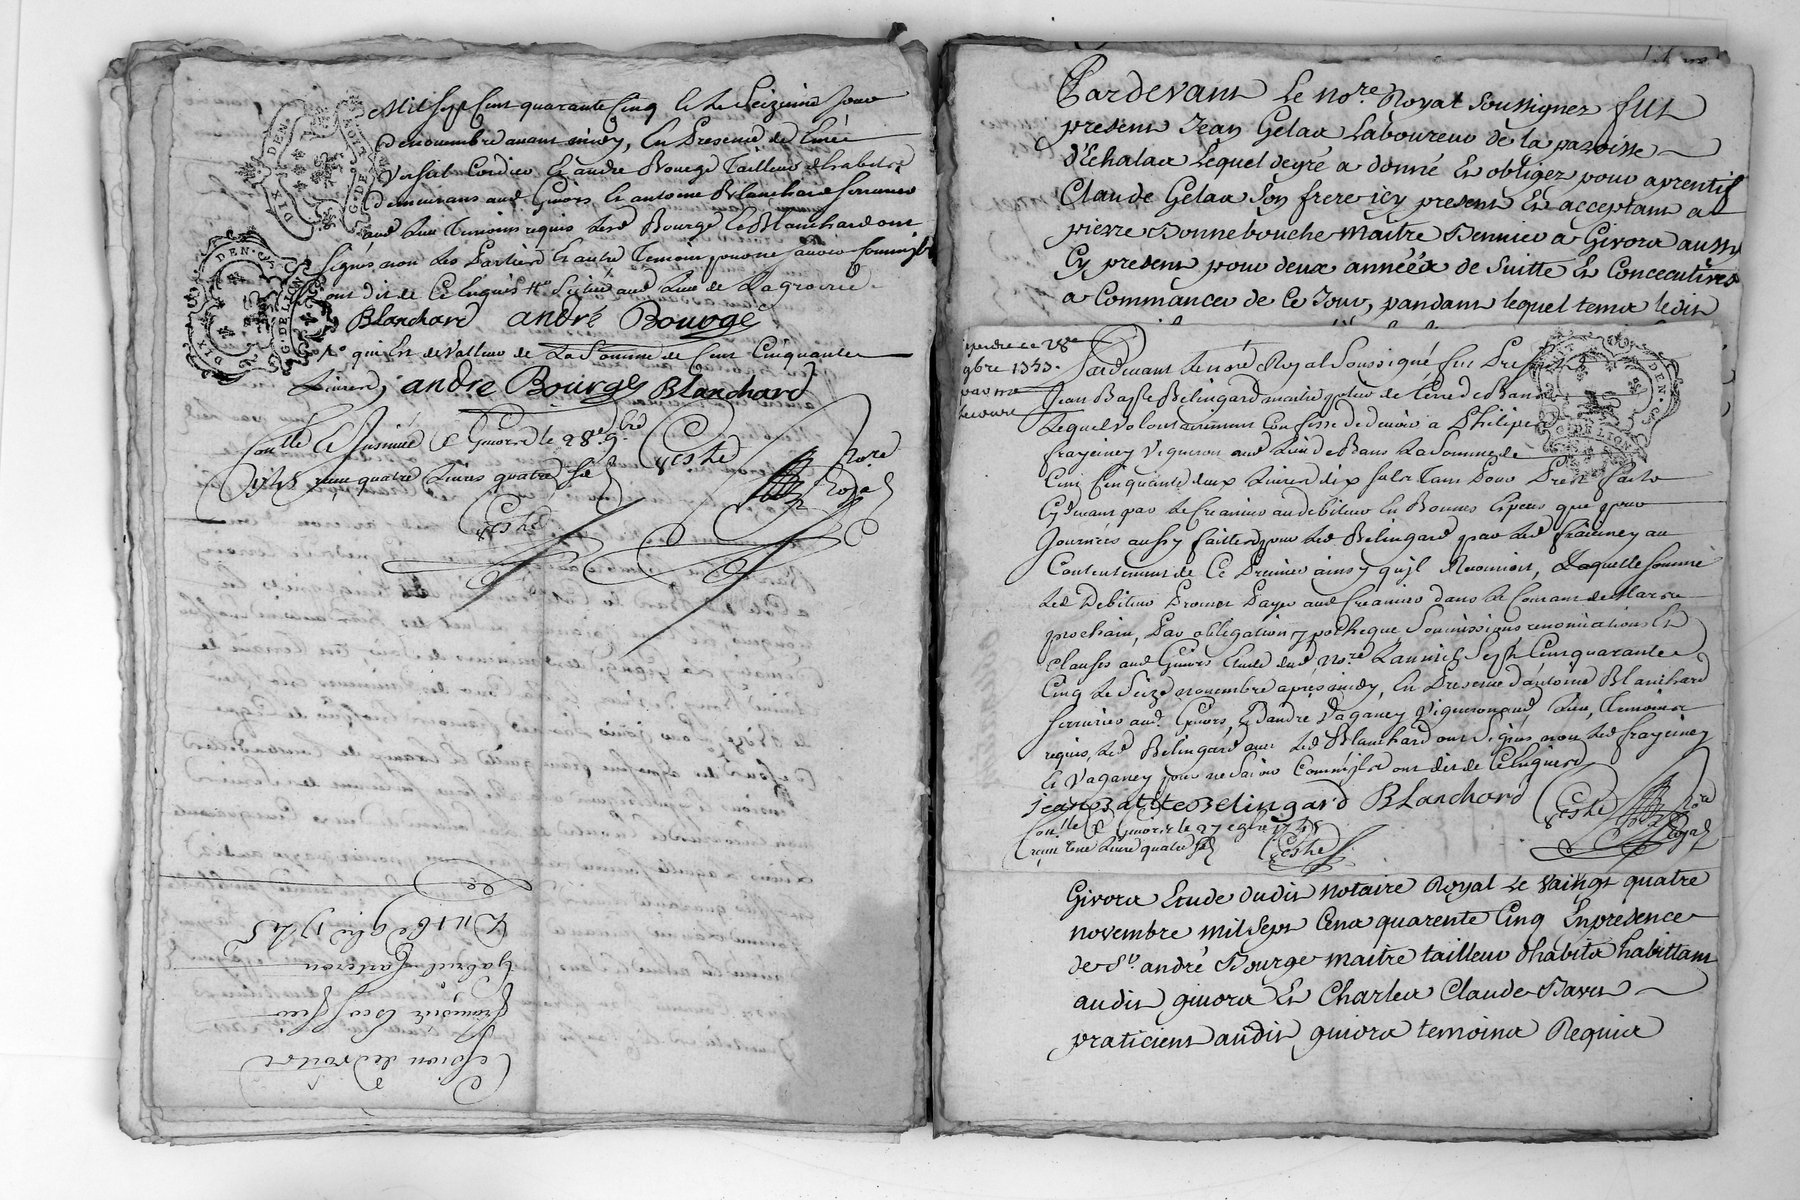 Mil sept Cent quarante Cinq le le Seizieme Jour
de novembre avant midy, En Presence de
Cordier Et andré Bourge Tailleur d'habits
demeurans aud Givors Et antoine Blanchard serrurier
aud Lieu Temoins requis Led Bourge Et Blanchard ont
signés non Les Parties Et autre Temoin pour ne savoir
ont dit de Ce Enquis
Blanchard andré Bourge
qui Est de Valleur de La Somme de Cent Cinquante
Livres, andré Bourge Blanchard
Conllé Et Insinué à Givors le 28e 9bre
1745 reçu quatre Livres quatre sols
Geshe
Geshe Nore Royal
Cession de droits
François
Gabriel
Du 16e 9bre 1745
Pardevant le nore Royal Soussignez fut
present Jean Gelax Laboureur de la paroisse
d'Echalax Lequel de gré a donné et obligez pour aprentif
Claude Gelax Son frere icy present Et acceptant a
pierre Bonnebouche Maitre Bennier a Givors aussy
Cy present pour deux annééx de Suitte Et Concecutives
a Commancer de Ce Jour, pandant lequel temx ledit
Expedié ce 28e
9bre 1353.
Pardevant Le nore Royal Soussigné, fut Present
Jean Batiste Belingard maitre potier de Terre de Bans
Lequel volontairement Confesse de devoir a Philipe
frayciney Vigneron aud Lieu de Bans La Somme de
Cent Cinquante deux Livres dix sols Tant Pour Prest fait
Cydevant par Le Creancier au debiteur En Bonnes Especes que pour
Journées aussy faittes pour led Belingard par led fraisiney au
Contentement de Ce Premier ainsy qu'il Reconnoit, Laquelle somme
Led Debiteur Promet Payer aud Creancier dans Le Courant de Mars
prochain, Par obligation, ypotheque Soumissions renonciations Et
clauses aud Givors Etude dud Nore Lan mil Sept Cent quarante
Cinq Le Seize novembre après midy, En Presence d'antoine Blanchard
serrurier aud Givors, Et d'andré Vaganey Vigneron aud Lieu, Temoins
requis, Led Belingard avec Led Blanchard ont Signés non Led frayciney
Et Vaganey pour ne Savoir Comme ils ont dit de Ce Enquis
jean Batite Belingard Blanchard Geshe Nore Royal
Conllé à Givors le 27 9bre 1745
reçu une Livre quatre sols Geshe
Givors Etude dudit Notaire Royal Le Vaingt quatre
novembre mil Sept Cena quarente Cinq En presence
de Sr. andré Bourge maitre tailleur d'habits habittant
audit givors Et Charlex Claude Baret
praticient audit givors temoins Requis